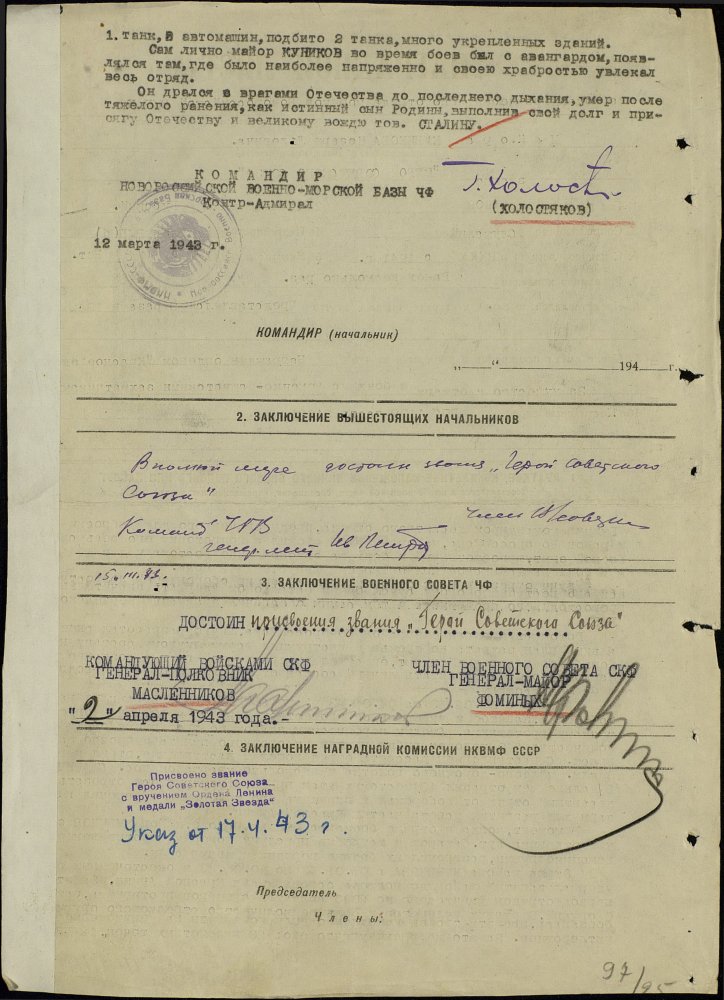 1. танк, 5 автомашин, подбито 2 танка, много укрепленных зданий.
Сам лично майор КУНИКОВ во время боев был с авангардом, появ-
лялся там, где было наиболее напряженно и своею храбростью увлекал
весь отряд.
Он дрался с врагами Отечества до последнего дыхания, умер после
тяжелого ранения, как истинный сын Родины, выполнив свой долг и при-
сягу Отечеству и великому вождю тов. СТАЛИНУ.
КОМАНДИР
НОВОРОССИЙСКОЙ ВОЕННО-МОРСКОЙ БАЗЫ ЧФ
Контр-Адмирал
Г. Холост
(ХОЛОСТЯКОВ)
12 марта 1943 г.
КОМАНДИР (начальник)
„ “ 194 г.
2. ЗАКЛЮЧЕНИЕ ВЫШЕСТОЯЩИХ НАЧАЛЬНИКОВ
В полной мере достоин звания „Герой Советского
Союза"
Команд ЧГВ
генер лейт Ив Петров
член
15.III.43.
3. ЗАКЛЮЧЕНИЕ ВОЕННОГО СОВЕТА ЧФ
ДОСТОИН присвоения звания „Герой Советского Союза"
КОМАНДУЮЩИЙ ВОЙСКАМИ СКФ
ГЕНЕРАЛ-ПОЛКОВНИК
МАСЛЕННИКОВ
ЧЛЕН ВОЕННОГО СОВЕТА СКФ
ГЕНЕРАЛ-МАЙОР
ФОМИНЫХ
"2" апреля 1943 года.-
4. ЗАКЛЮЧЕНИЕ НАГРАДНОЙ КОМИССИИ НКВМФ СССР
Присвоено звание
Героя Советского Союза
с вручением Ордена Ленина
и медали „Золотая Звезда"
Указ от 17.4.43 г.
Председатель
Члены:
97/95